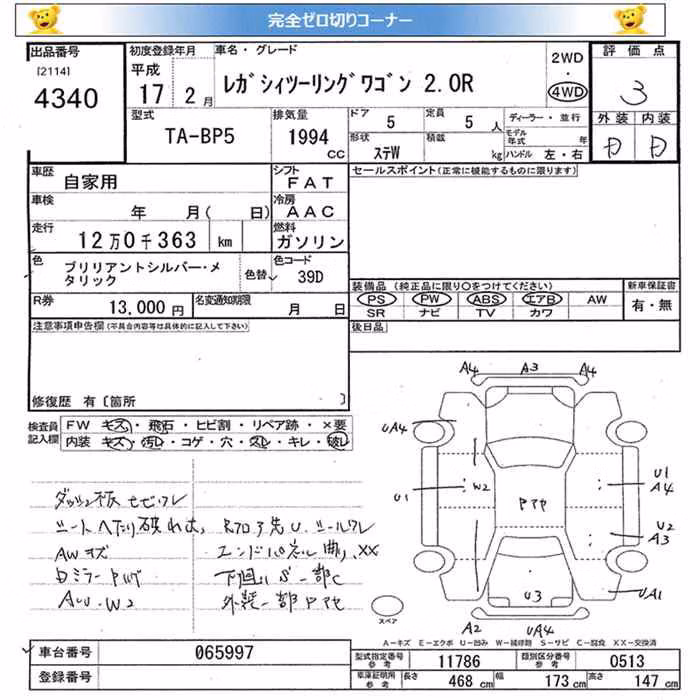 完全ゼロ切りコーナー
出品番号
[2114]
4340
初度登録年月
平成
17 2月
車名・グレード
レガシィツーリングワゴン 2.0R
2WD
・
4WD
評価点
3
外装 内装
D D
型式
TA-BP5
排気量
1994
CC
ドア
5
定員
5 人
形状
ステW
積載
kg
ディーラー・並行
モデル年式 年
ハンドル 左・右
車歴
自家用
シフト
FAT
車検
年 月( 日)
冷房
AAC
走行
12万0千363 km
燃料
ガソリン
色
ブリリアントシルバー・メタリック
色替
色コード
39D
R券
13,000円
名変通知期限
月 日
セールスポイント(正常に機能するものに限ります)
装備品 (純正品に限り○をつけてください)
PS PW ABS エアB AW
SR ナビ TV カワ
新車保証書
有・無
後日品
注意事項申告欄(不具合内容等は具体的に記入して下さい)
修復歴 有〔箇所 〕
検査員記入欄
FW キズ・飛石・ヒビ割・リペア跡・×要
内装 キズ・汚レ・コゲ・穴・スレ・キレ・破レ
シートヘタリ破れ大
AWキズ
AUU. W2
エンドパネル曲り、XX
A4 A3 A4
UA4
U1
W2
U1
A4
U2
A3
UA1
U3
A2 UA4
スペア
A-キズ E-エクボ U-凹み W-補修跡 S-サビ C-腐食 XX-交換済
車台番号
065997
登録番号
型式指定番号
参考
11786
類別区分番号
参考
0513
車庫証明用
参考
長さ 468 cm 幅 173 cm 高さ 147 cm